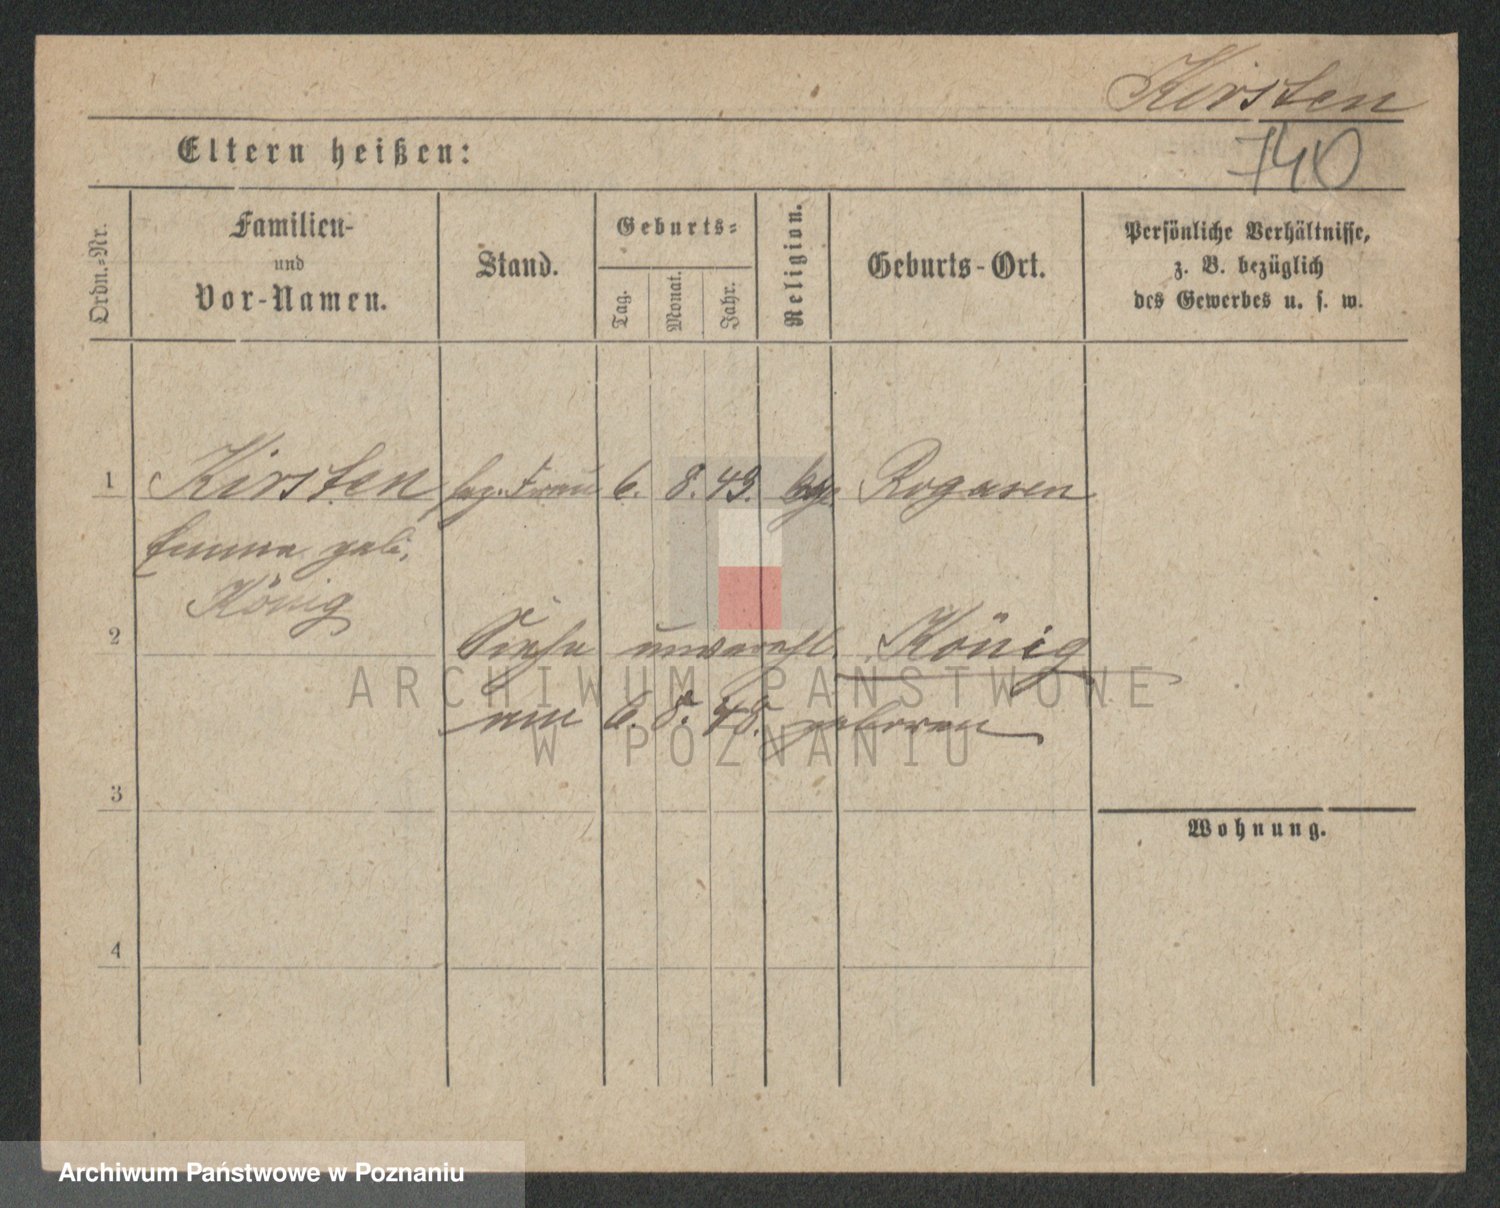 Kirsten
740
Eltern heißen:
Ordn.-Nr.
Familien-
und
Vor-Namen.
Stand.
Geburts-
Tag.
Monat.
Jahr.
Religion.
Geburts-Ort.
Persönliche Verhältnisse,
z. B. bezüglich
des Gewerbes u. s. w.
1 Kirsten Frau 6. 8. 49. Rogasen
Emma geb.
König
2 Siehe unverehl. König
am 6. 8. 48. geboren
3
Wohnung.
4
ARCHIWUM PAŃSTWOWE
W POZNANIU
Archiwum Państwowe w Poznaniu